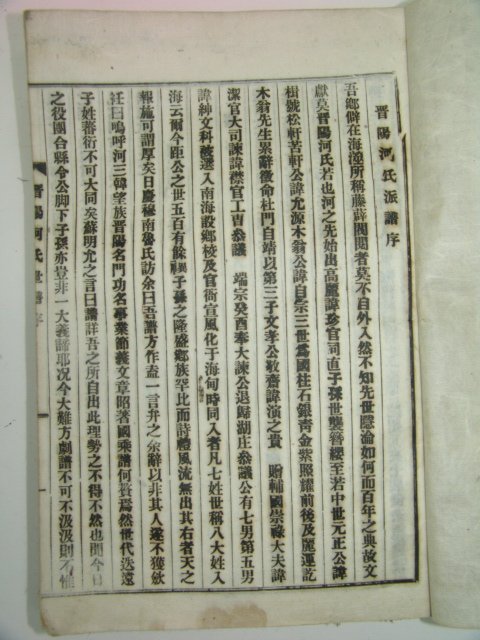 晋陽河氏派譜序
吾鄉僻在海澨所稱藤薜閥閱者莫不自外入然不知先世隱淪如何而百年之典故文
獻莫晋陽河氏若也河之先始出高麗諱珍官司直子孫世襲簪纓至若中世元正公諱
楫號松軒苦軒公諱允源木翁公諱自宗三世爲國柱石銀靑金紫照耀前後及麗運訖
木翁先生累辭徵命杜門自靖以第三子文孝公敬齋諱演之貴 贈輔國崇祿大夫諱
潔官大司諫諱襟官工曺叅議 端宗癸酉奉大諫公退歸湖庄叅議公有七男第五男
諱紳文科被選入南海設鄉校及官衙宣風化于海甸時同入者凡七姓世稱八大姓入
海云爾今距公之世五百有餘異子孫之隆盛鄉族罕比而詩禮風流無出其右者天之
報施可謂厚矣日慶穆南魯氏訪余曰吾譜方作盍一言弁之余辭以非其人遂不獲敛
衽曰嗚呼河三韓望族晋陽名門功名事業節義文章昭著國乘譜何贅爲然世代迭遠
子姓蕃衍不可大同矣蘇明允之言曰譜詳吾之所自出此理勢之不得不然也聞今日
之役團合縣令公脚下子孫亦豈非一大義諦耶况今大難方劇譜不可不汲汲則不惟
晋陽河氏世譜序
一